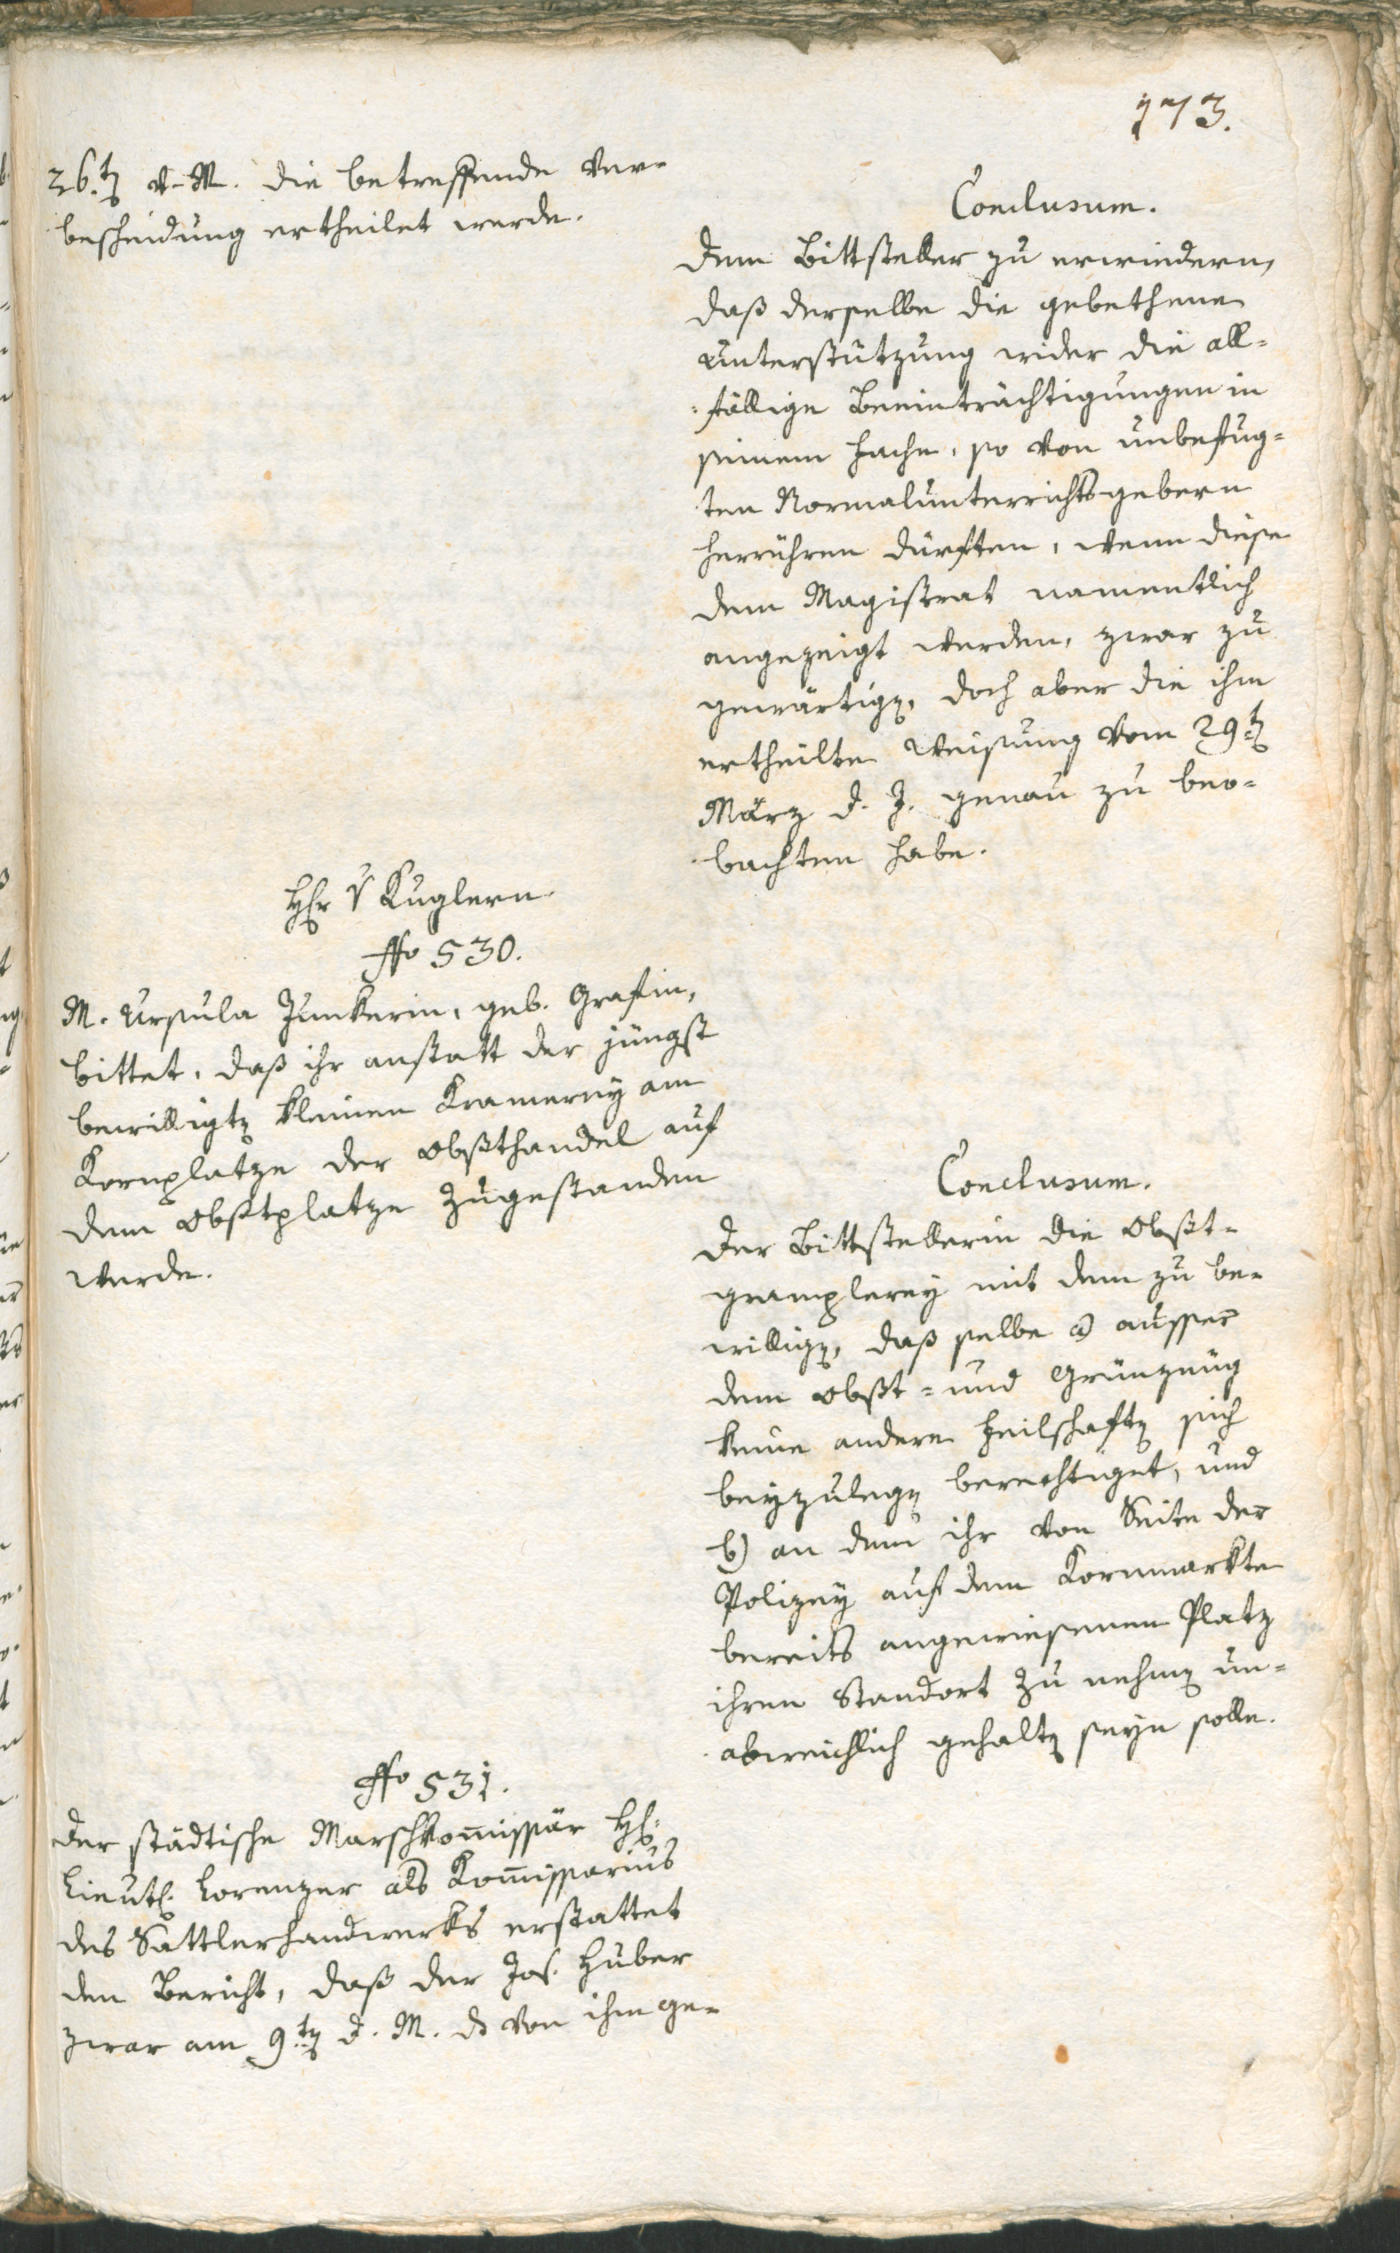 173.
26.ten v. M. die betreffende Ver-
bescheidung ertheilet werde.
Conclusum.
Dem Bittsteller zu erwiedern,
daß derselbe die gebethene
Unterstützung wider die all-
fällige Beeinträchtigungen in
seinem Fache, so von unbefug-
ten Normalunterrichtsgebern
herrühren dürften, wenn diese
dem Magistrat namentlich
angezeigt werden, zwar zu
gewärtigen, doch aber die ihm
ertheilte Weisung vom 29.ten
März d. J. genau zu beo-
bachten habe.
Hr v Kuglern
Nro 530.
M. Ursula Junkerin, geb. Grafin,
bittet, daß ihr anstatt der jüngst
bewilligten kleinen Kramerey am
Kornplatze der Obsthandel auf
dem Obstplatze zugestanden
werde.
Conclusum.
Der Bittstellerin die Obst-
gramplerey mit dem zu be-
willigen, daß selbe a) ausser
dem Obst- und Grünzeug
keine andere Feilschaften sich
beyzulegen berechtiget, und
b) an dem ihr von Seite der
Polizey auf dem Kornmarkte
bereits angewiesenen Platz
ihren Standort zu nehmen un-
abweichlich gehalten seyn solle.
Nro 531.
Der städtische Marschkom̄issär H:
Lieut. Lorenzer als Kom̄issarius
des Sattlerhandwerks erstattet
den Bericht, daß der Jos. Huber
zwar am 9.ten d. M. den von ihm ge-